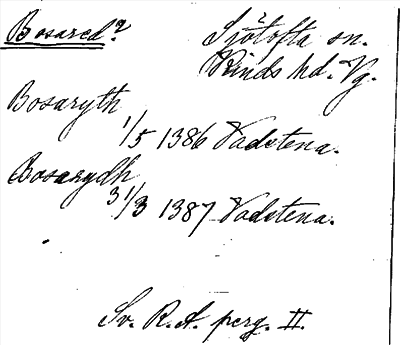 Bosared? Sjötofta sn.
Kinds hd. Vg.
Bosaryth
1/5 1386 Vadstena.
Bosarydh
31/3 1387 Vadstena.
Sv. R.A. perg. II.